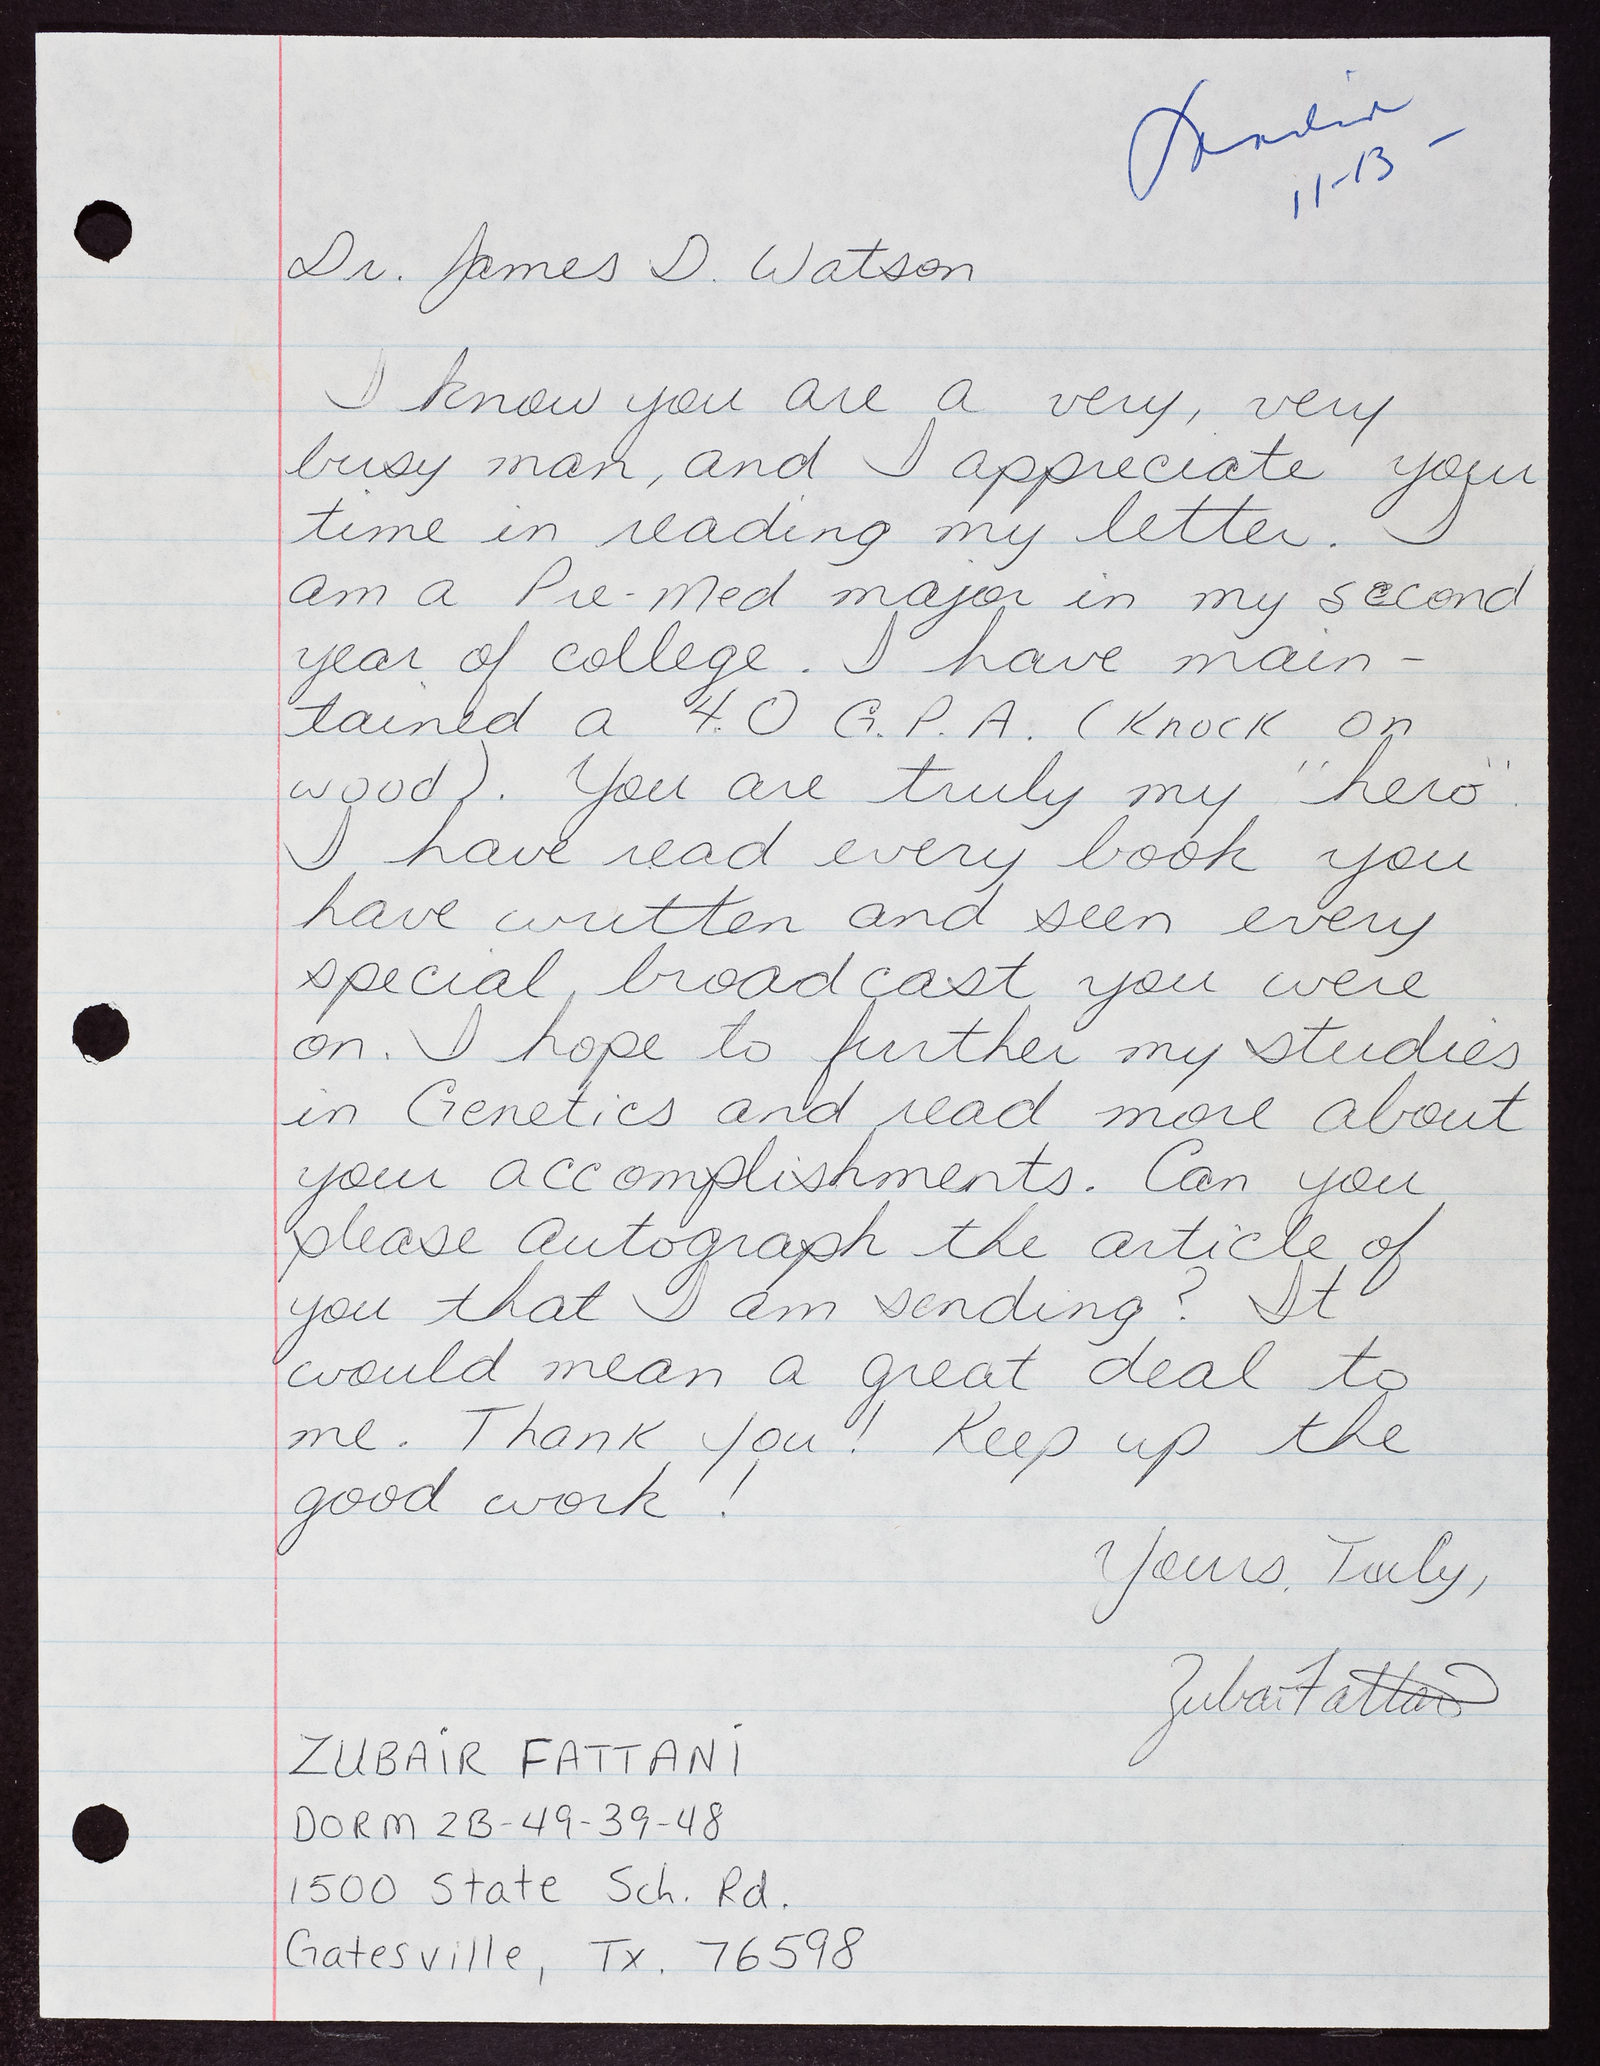 11-13 -
Dr. James D. Watson
I know you are a very, very
busy man, and I appreciate your
time in reading my letter. I
am a Pre-Med major in my second
year of college. I have main-
tained a 4.0 G.P.A. (Knock on
wood). You are truly my "hero".
I have read every book you
have written and seen every
special broadcast you were
on. I hope to further my studies
in Genetics and read more about
your accomplishments. Can you
please autograph the article of
you that I am sending? It
would mean a great deal to
me. Thank you! Keep up the
good work!
Yours Truly,
Zubair Fattani
ZUBAIR FATTANI
DORM 2B-49-39-48
1500 State Sch. Rd.
Gatesville, Tx. 76598